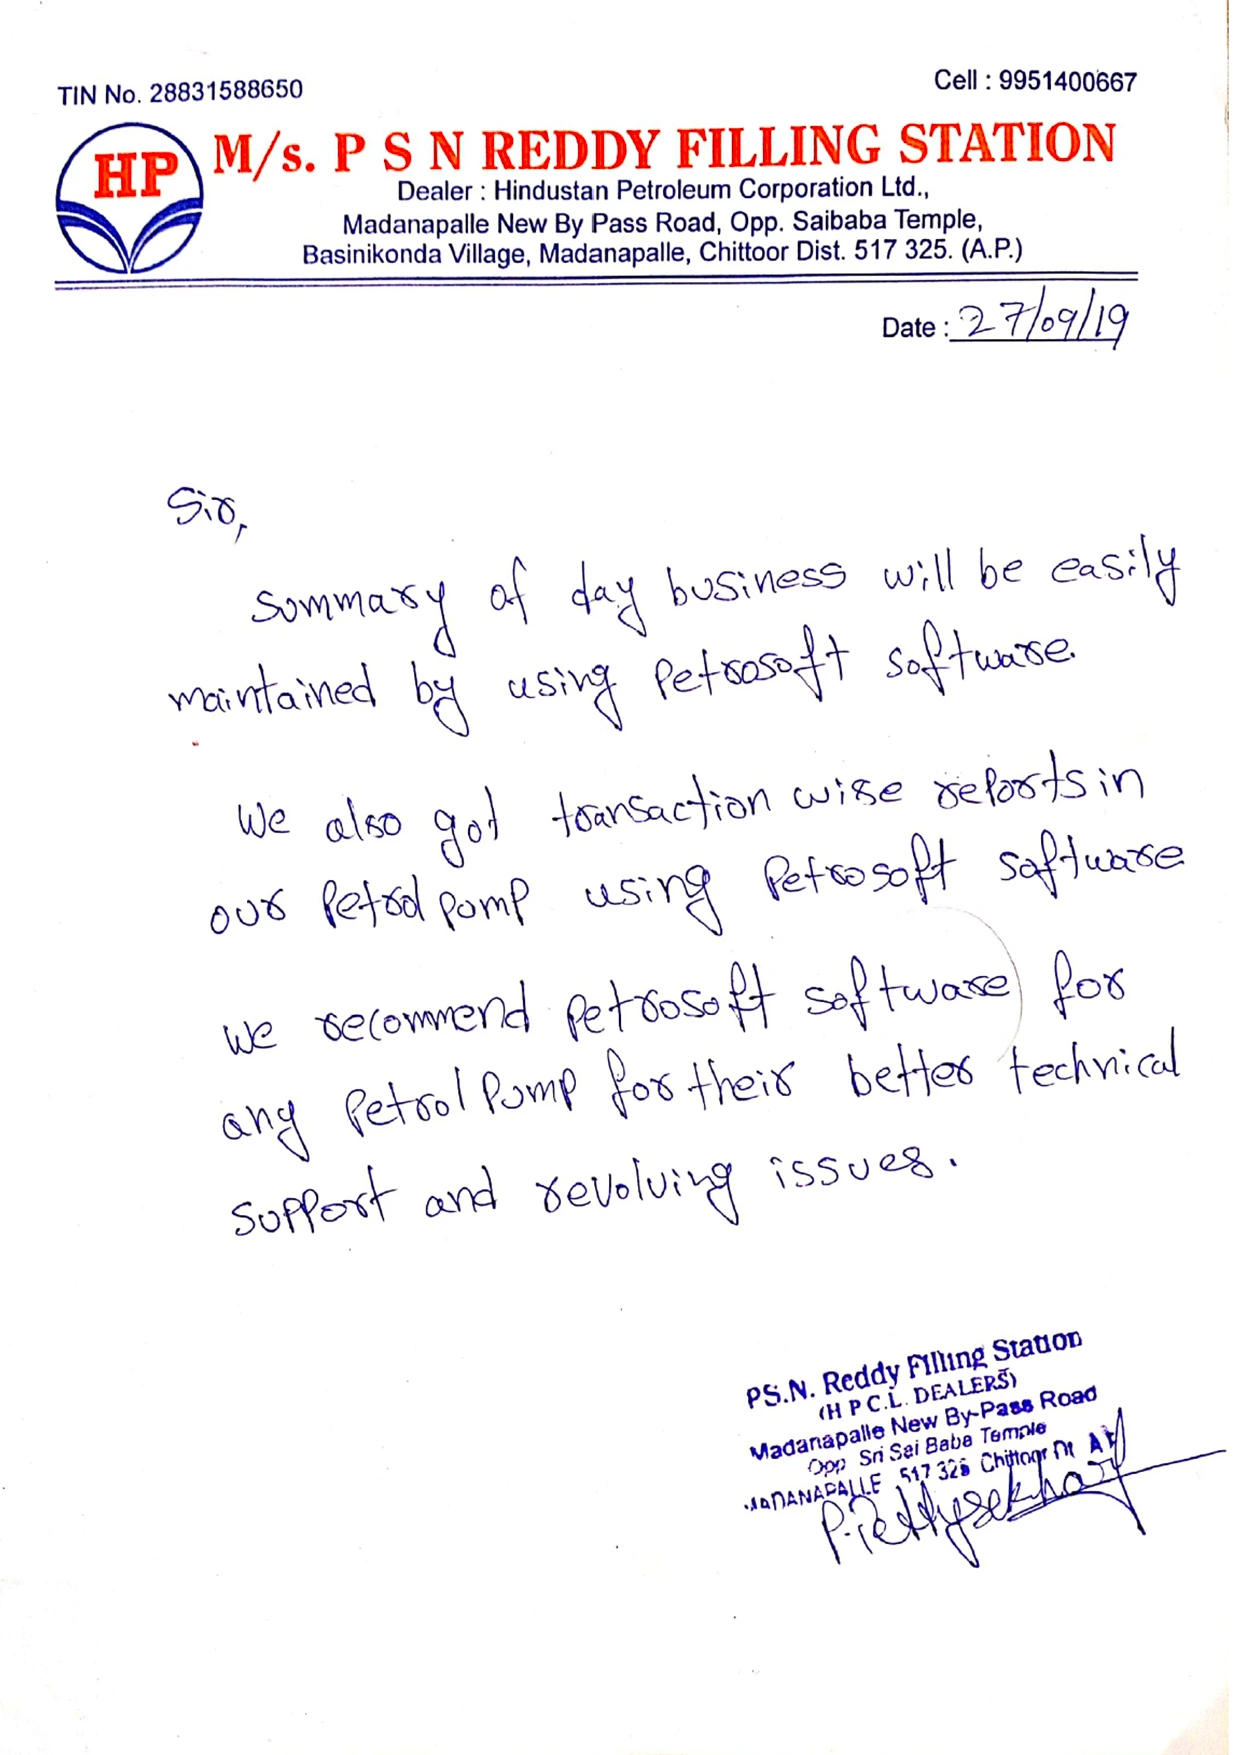 TIN No. 28831588650
Cell : 9951400667
HP
M/s. P S N REDDY FILLING STATION
Dealer : Hindustan Petroleum Corporation Ltd.,
Madanapalle New By Pass Road, Opp. Saibaba Temple,
Basinikonda Village, Madanapalle, Chittoor Dist. 517 325. (A.P.)
Date : 27/09/19
Sir,
Summary of day business will be easily
maintained by using Petrosoft software.
We also got transaction wise reports in
our Petrol pump using Petrosoft software
We recommend Petrosoft software for
any Petrol Pump for their better technical
support and revolving issues.
PS.N. Reddy Filling Station
(H P C.L. DEALERS)
Madanapalle New By-Pass Road
Opp Sri Sai Baba Temple
MADANAPALLE 517 325 Chittoor Dt A P